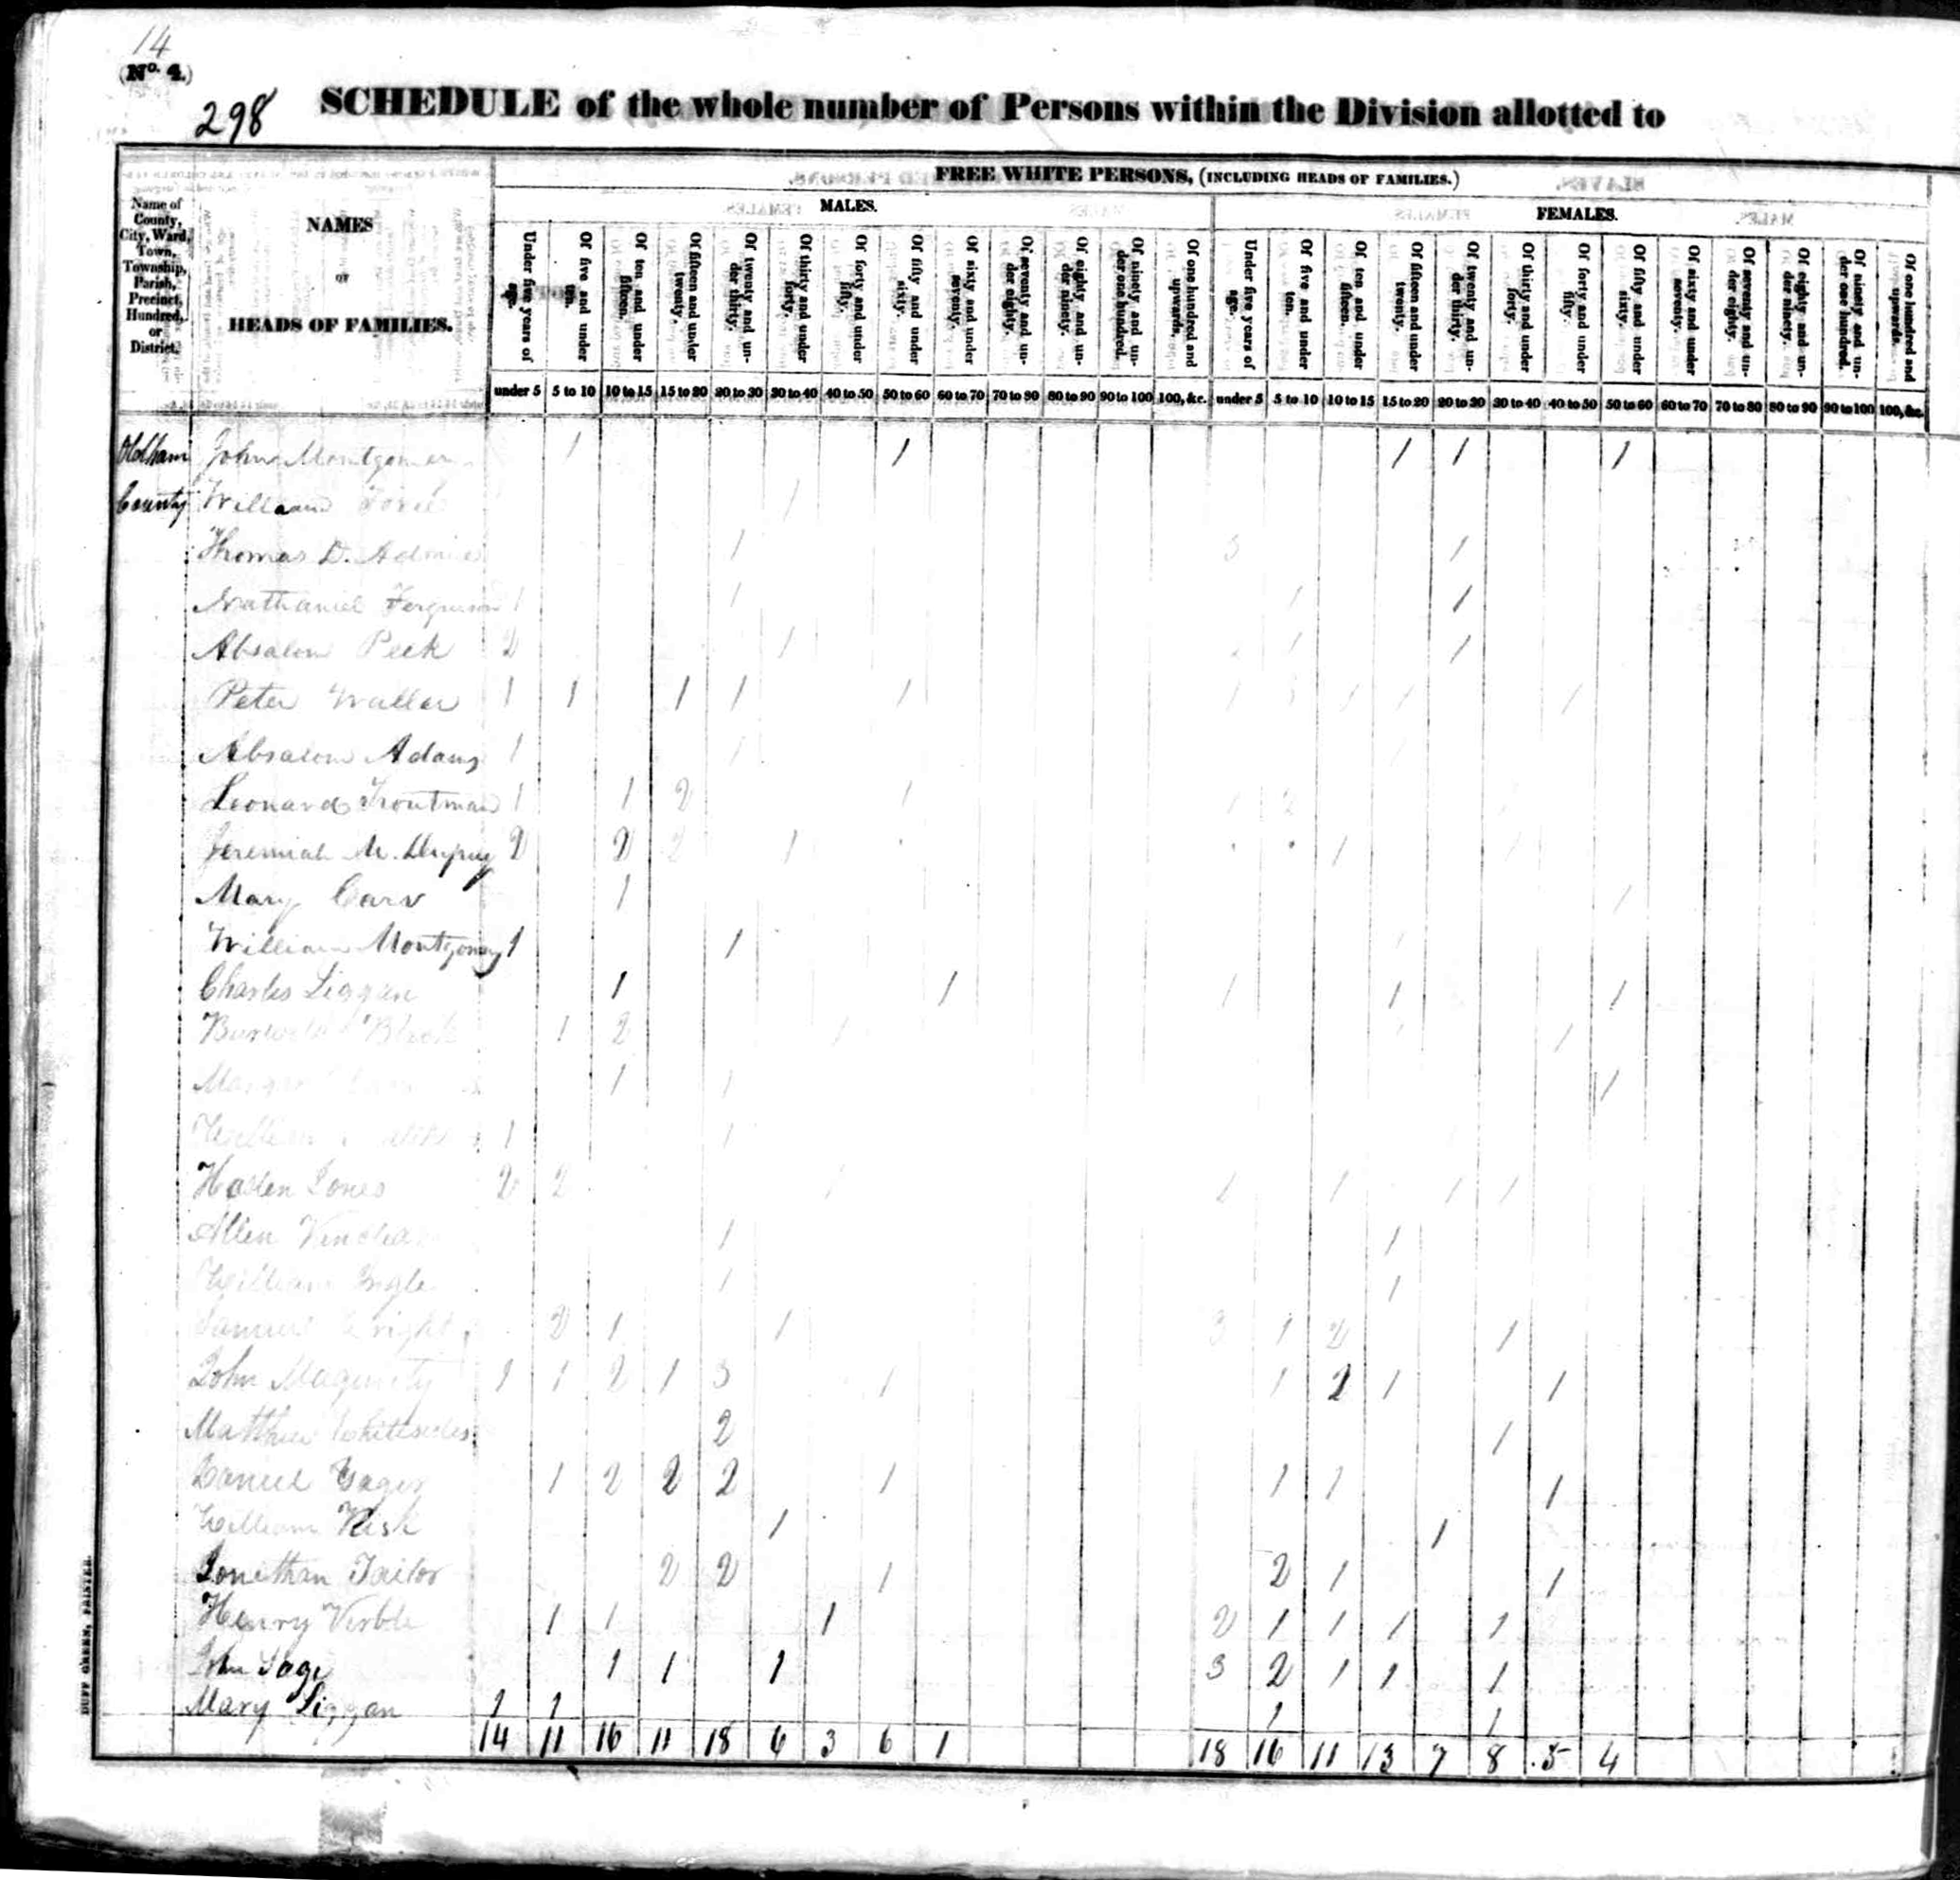 14
(No. 4.)
298
SCHEDULE of the whole number of Persons within the Division allotted to
FREE WHITE PERSONS, (INCLUDING HEADS OF FAMILIES.)
MALES.
FEMALES.
Name of County, City, Ward, Town, Township, Parish, Precinct, Hundred, or District.
NAMES
OF
HEADS OF FAMILIES.
Under five years of age.
Of five and under ten.
Of ten and under fifteen.
Of fifteen and under twenty.
Of twenty and under thirty.
Of thirty and under forty.
Of forty and under fifty.
Of fifty and under sixty.
Of sixty and under seventy.
Of seventy and under eighty.
Of eighty and under ninety.
Of ninety and under one hundred.
Of one hundred and upwards.
Under five years of age.
Of five and under ten.
Of ten and under fifteen.
Of fifteen and under twenty.
Of twenty and under thirty.
Of thirty and under forty.
Of forty and under fifty.
Of fifty and under sixty.
Of sixty and under seventy.
Of seventy and under eighty.
Of eighty and under ninety.
Of ninety and under one hundred.
Of one hundred and upwards.
under 5 5 to 10 10 to 15 15 to 20 20 to 30 30 to 40 40 to 50 50 to 60 60 to 70 70 to 80 80 to 90 90 to 100 100, &c. under 5 5 to 10 10 to 15 15 to 20 20 to 30 30 to 40 40 to 50 50 to 60 60 to 70 70 to 80 80 to 90 90 to 100 100, &c.
Oldham John Montgomery 1 1 1 1 1
County William 1
Thomas D. 1 3 1
Nathaniel Ferguson 1 1 1 1
Absalom Peek 2 1 1 1
Peter Waller 1 1 1 1 1 1 3 1 1 1
Absalom Adams 1 1 1
Leonard Troutman 1 1 2 1 1
Jeremiah M. Dupuy 2 2 2 1 1 1
Mary Carr 1 1
William Montgomery 1 1 1
Charles Liggan 1 1 1 1 1
1 2 1 1 1
1 1 1
William 1 1
Haden Jones 2 2 1 1 1 1 1
Allen 1 1
William 1 1
Samuel Wright 2 1 1 3 1 2 1
John 1 1 2 1 3 1 1 2 1 1
Matthew Whitesides 2 1
Daniel Yager 1 2 2 2 1 1 1 1
William 1 1
Jonethan Tailor 2 2 1 2 1 1
Henry 1 1 1 2 1 1 1 1
John 1 1 1 3 2 1 1 1
Mary Liggan 1 1 1 1
14 11 16 11 18 6 3 6 1 18 16 11 13 7 8 5 4
DUFF GREEN, PRINTER.